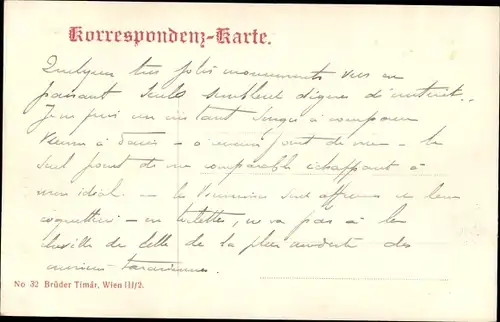 Korrespondenz-Karte.
Quelques très jolis monuments vus en
passant seuls semblent dignes d'intérêt..
Je ne puis un instant songer à comparer
Vienne à Paris - à aucun point de vue - le
seul point de vue comparable échappant à
mon idéal. - les Viennoises sont affreuses et leur
coquetterie - en toilettes, ne va pas à la
cheville de celle de la plus modeste des
parisiennes.
No 32 Brüder Timár, Wien III/2.